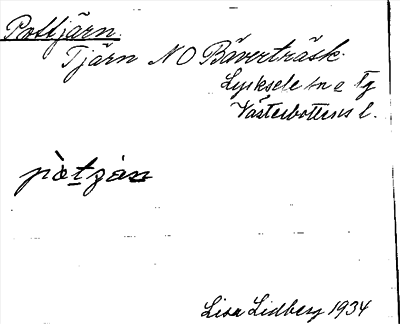 Pottjärn.
Tjärn NO Bäverträsk.
Lycksele sn o tg
Västerbottens l.
Lisa Lidberg 1934